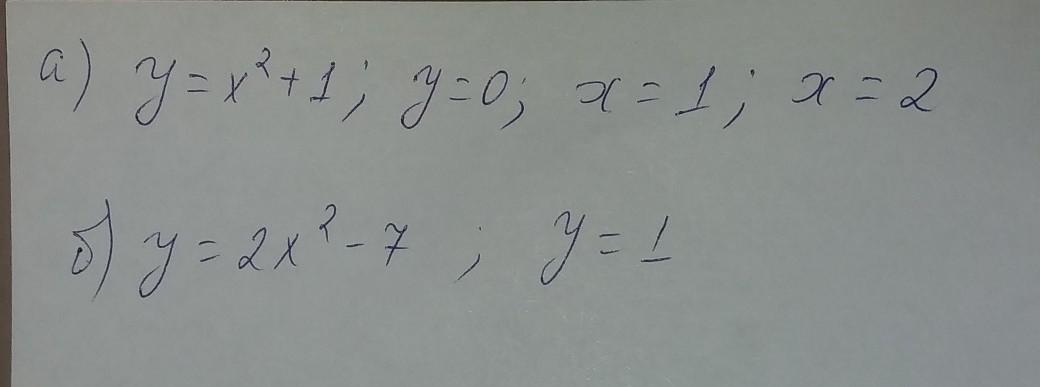 а) y = x² + 1; y = 0; x = 1; x = 2
б) y = 2x² - 7 ; y = 1